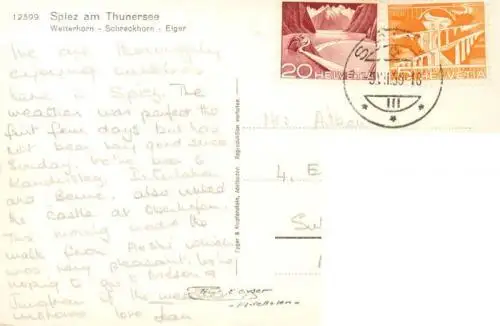 12599 Spiez am Thunersee
Wetterhorn - Schreckhorn - Eiger
We are thoroughly
enjoying ourselves
here in Spiez. The
weather was perfect the
first few days but has
not been very good since
Sunday. We've been to
Kandersteg, Interlaken
and Berne, also visited
the castle at Oberhofen.
This morning we did the
walk from Aeschi which
was very pleasant. We're
hoping to go to
Jungfrau if the
improves. love Jean
Reproduktion verboten.
20 HELVETIA
HELVETIA
III
Mr.
4.